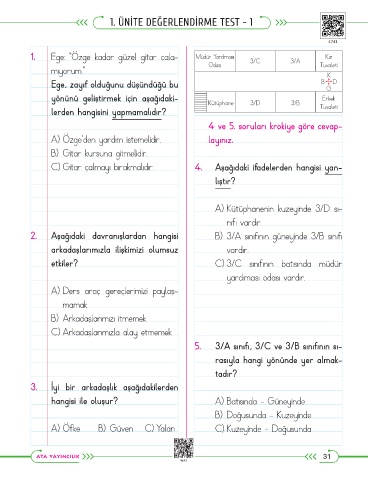 1. ÜNİTE DEĞERLENDİRME TEST - 1
1. Ege: "Özge kadar güzel gitar çala-
mıyorum."
Ege, zayıf olduğunu düşündüğü bu
yönünü geliştirmek için aşağıdaki-
lerden hangisini yapmamalıdır?
A) Özge'den yardım istemelidir.
B) Gitar kursuna gitmelidir.
C) Gitar çalmayı bırakmalıdır.
2. Aşağıdaki davranışlardan hangisi
arkadaşlarımızla ilişkimizi olumsuz
etkiler?
A) Ders araç gereçlerimizi paylaş-
mamak
B) Arkadaşlarımızı itmemek
C) Arkadaşlarımızla alay etmemek
3. İyi bir arkadaşlık aşağıdakilerden
hangisi ile oluşur?
A) Öfke B) Güven C) Yalan
Müdür Yardımcısı Odası 3/C 3/A Kız Tuvaleti
K
B D
G
Kütüphane 3/D 3/B Erkek Tuvaleti
4 ve 5. soruları krokiye göre cevap-
layınız.
4. Aşağıdaki ifadelerden hangisi yan-
lıştır?
A) Kütüphanenin kuzeyinde 3/D sı-
nıfı vardır.
B) 3/A sınıfının güneyinde 3/B sınıfı
vardır.
C) 3/C sınıfının batısında müdür
yardımcısı odası vardır.
5. 3/A sınıfı, 3/C ve 3/B sınıfının sı-
rasıyla hangi yönünde yer almak-
tadır?
A) Batısında - Güneyinde
B) Doğusunda - Kuzeyinde
C) Kuzeyinde - Doğusunda
ATA YAYINCILIK
31